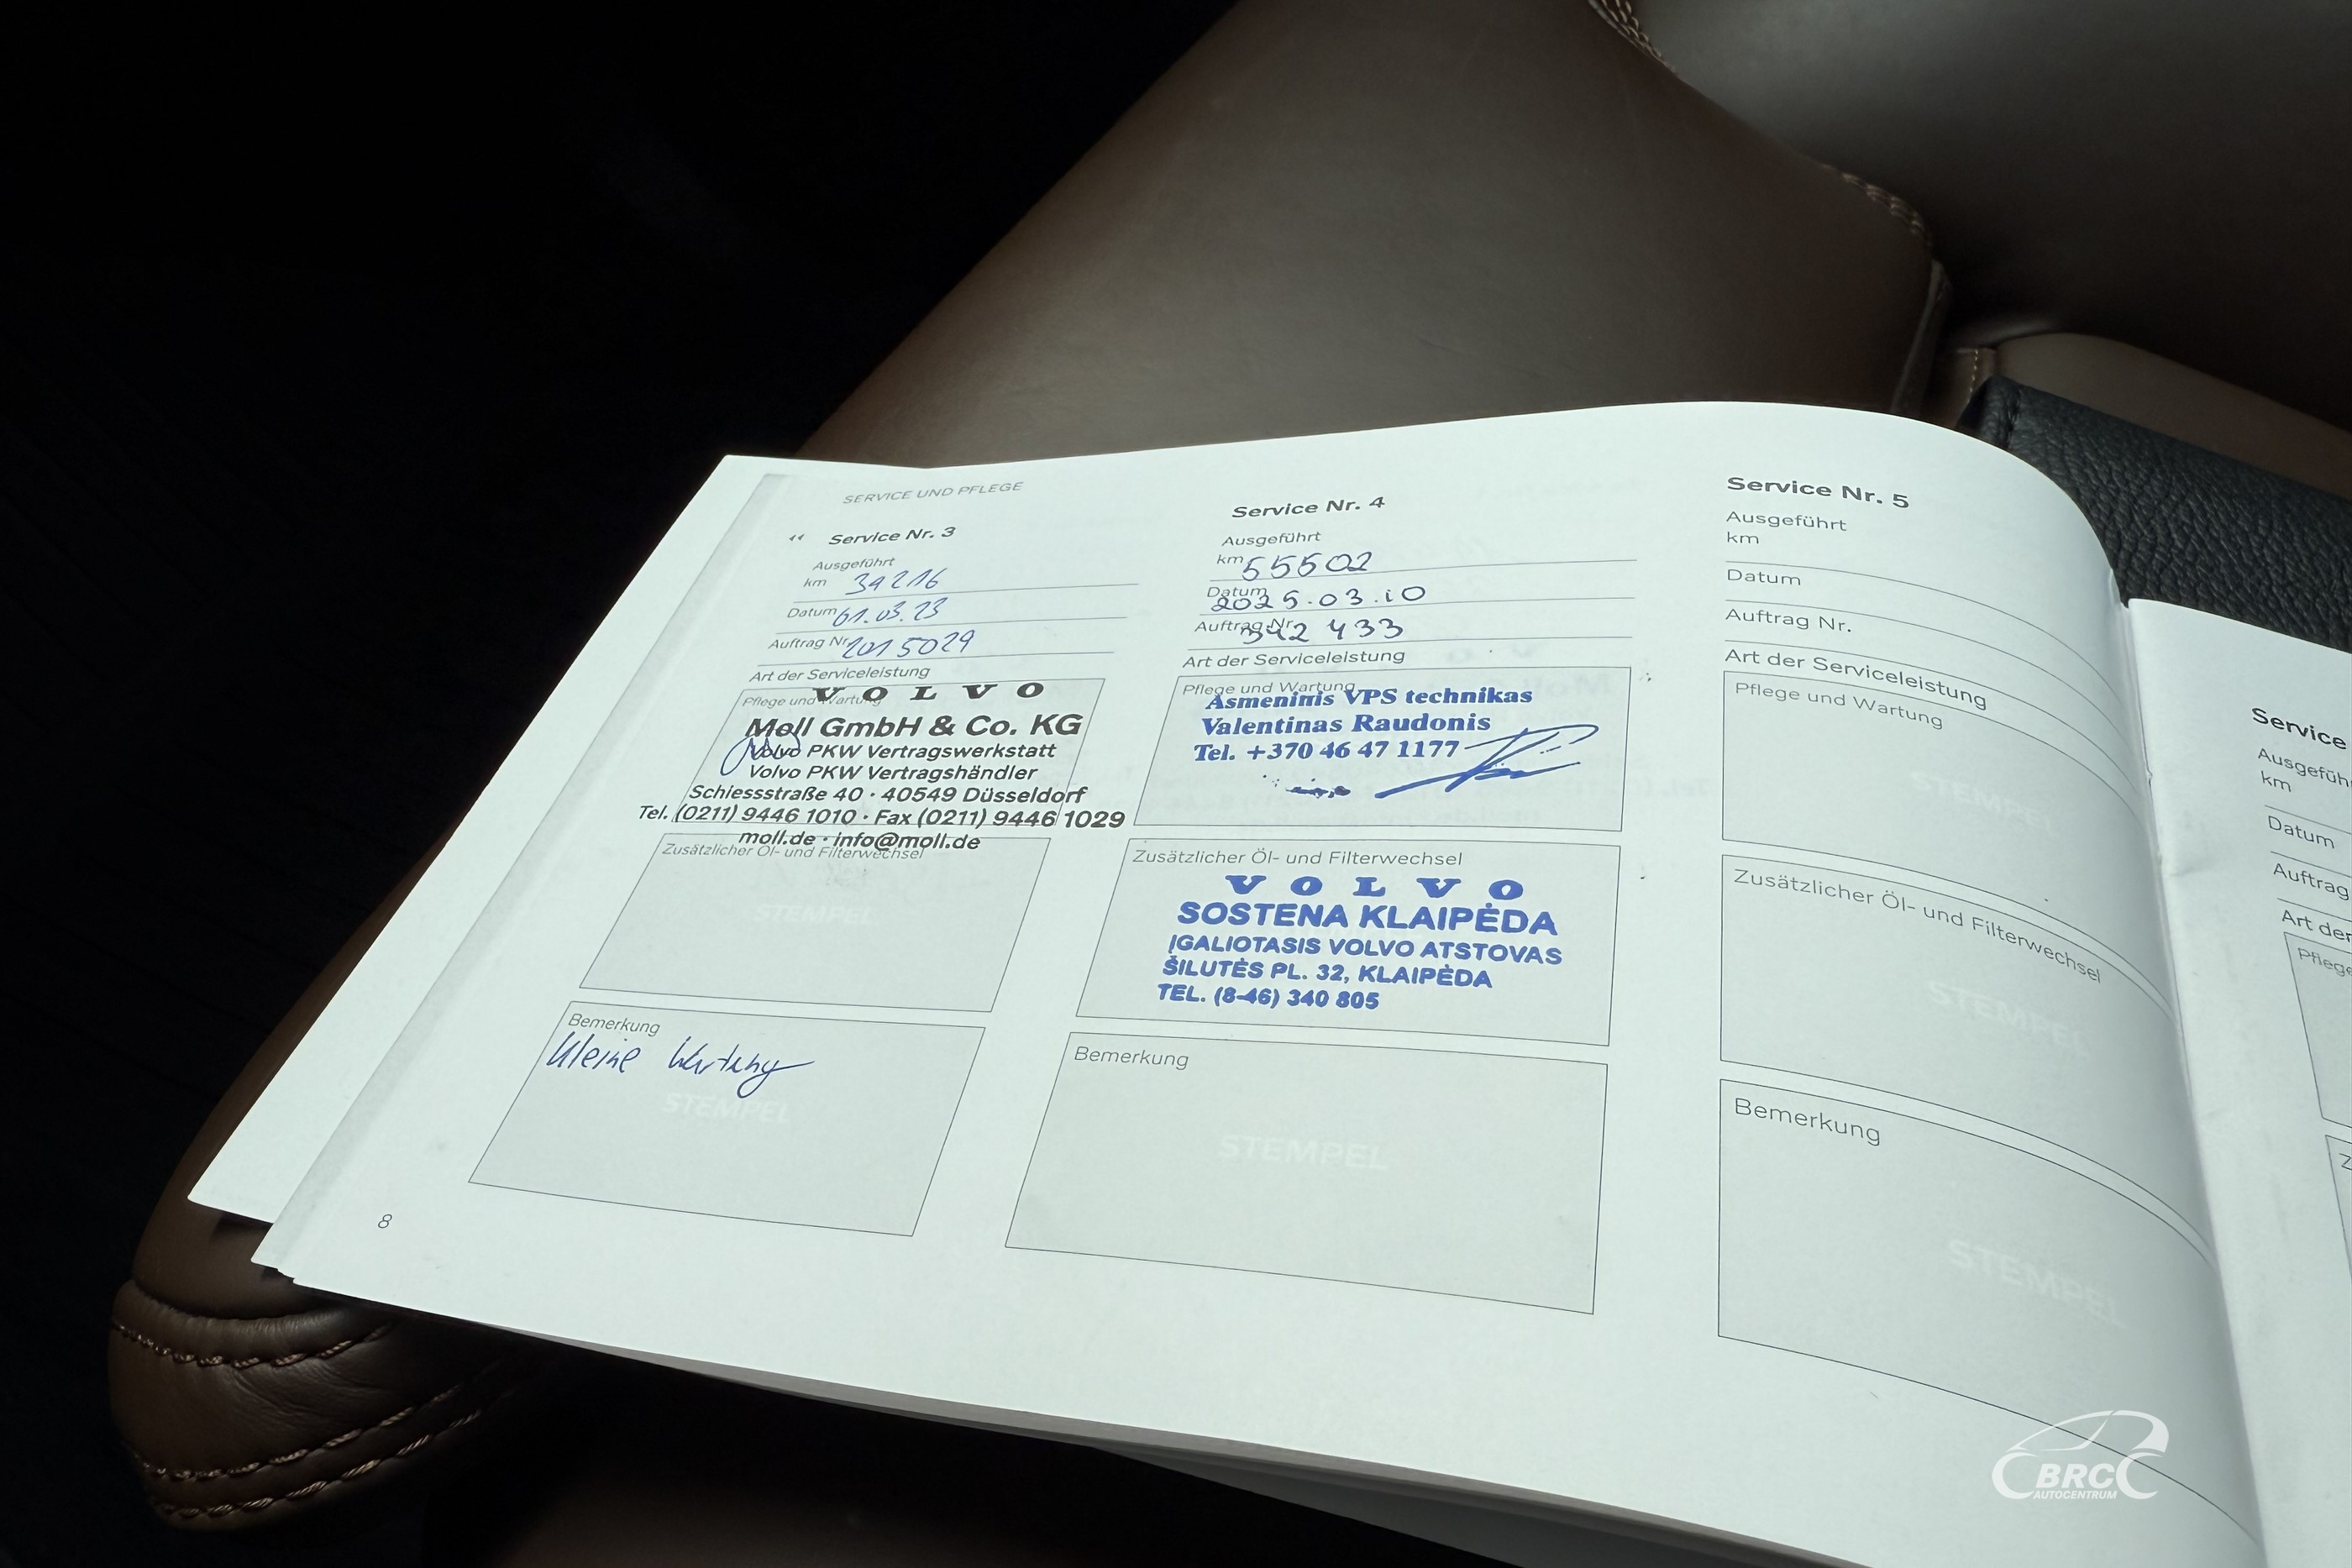 SERVICE UND PFLEGE
Service Nr. 3
Ausgeführt
km 34216
Datum 01.03.23
Auftrag Nr. 2015029
Art der Serviceleistung
Pflege und Wartung
VOLVO
Moll GmbH & Co. KG
Volvo PKW Vertragswerkstatt
Volvo PKW Vertragshändler
Schiessstraße 40 · 40549 Düsseldorf
Tel. (0211) 9446 1010 · Fax (0211) 9446 1029
moll.de · info@moll.de
Zusätzlicher Öl- und Filterwechsel
STEMPEL
Bemerkung
Kleine Wartung
STEMPEL
8
Service Nr. 4
Ausgeführt
km 55502
Datum 2025.03.10
Auftrag Nr. 342 433
Art der Serviceleistung
Pflege und Wartung
Asmeninis VPS technikas
Valentinas Raudonis
Tel. +370 46 47 1177
Zusätzlicher Öl- und Filterwechsel
VOLVO
SOSTENA KLAIPĖDA
ĮGALIOTASIS VOLVO ATSTOVAS
ŠILUTĖS PL. 32, KLAIPĖDA
TEL. (8-46) 340 805
Bemerkung
STEMPEL
Service Nr. 5
Ausgeführt
km
Datum
Auftrag Nr.
Art der Serviceleistung
Pflege und Wartung
STEMPEL
Zusätzlicher Öl- und Filterwechsel
STEMPEL
Bemerkung
STEMPEL
Service
Ausgefüh
km
Datum
Auftrag
Art der
Pflege
Z
BRC
AUTOCENTRUM